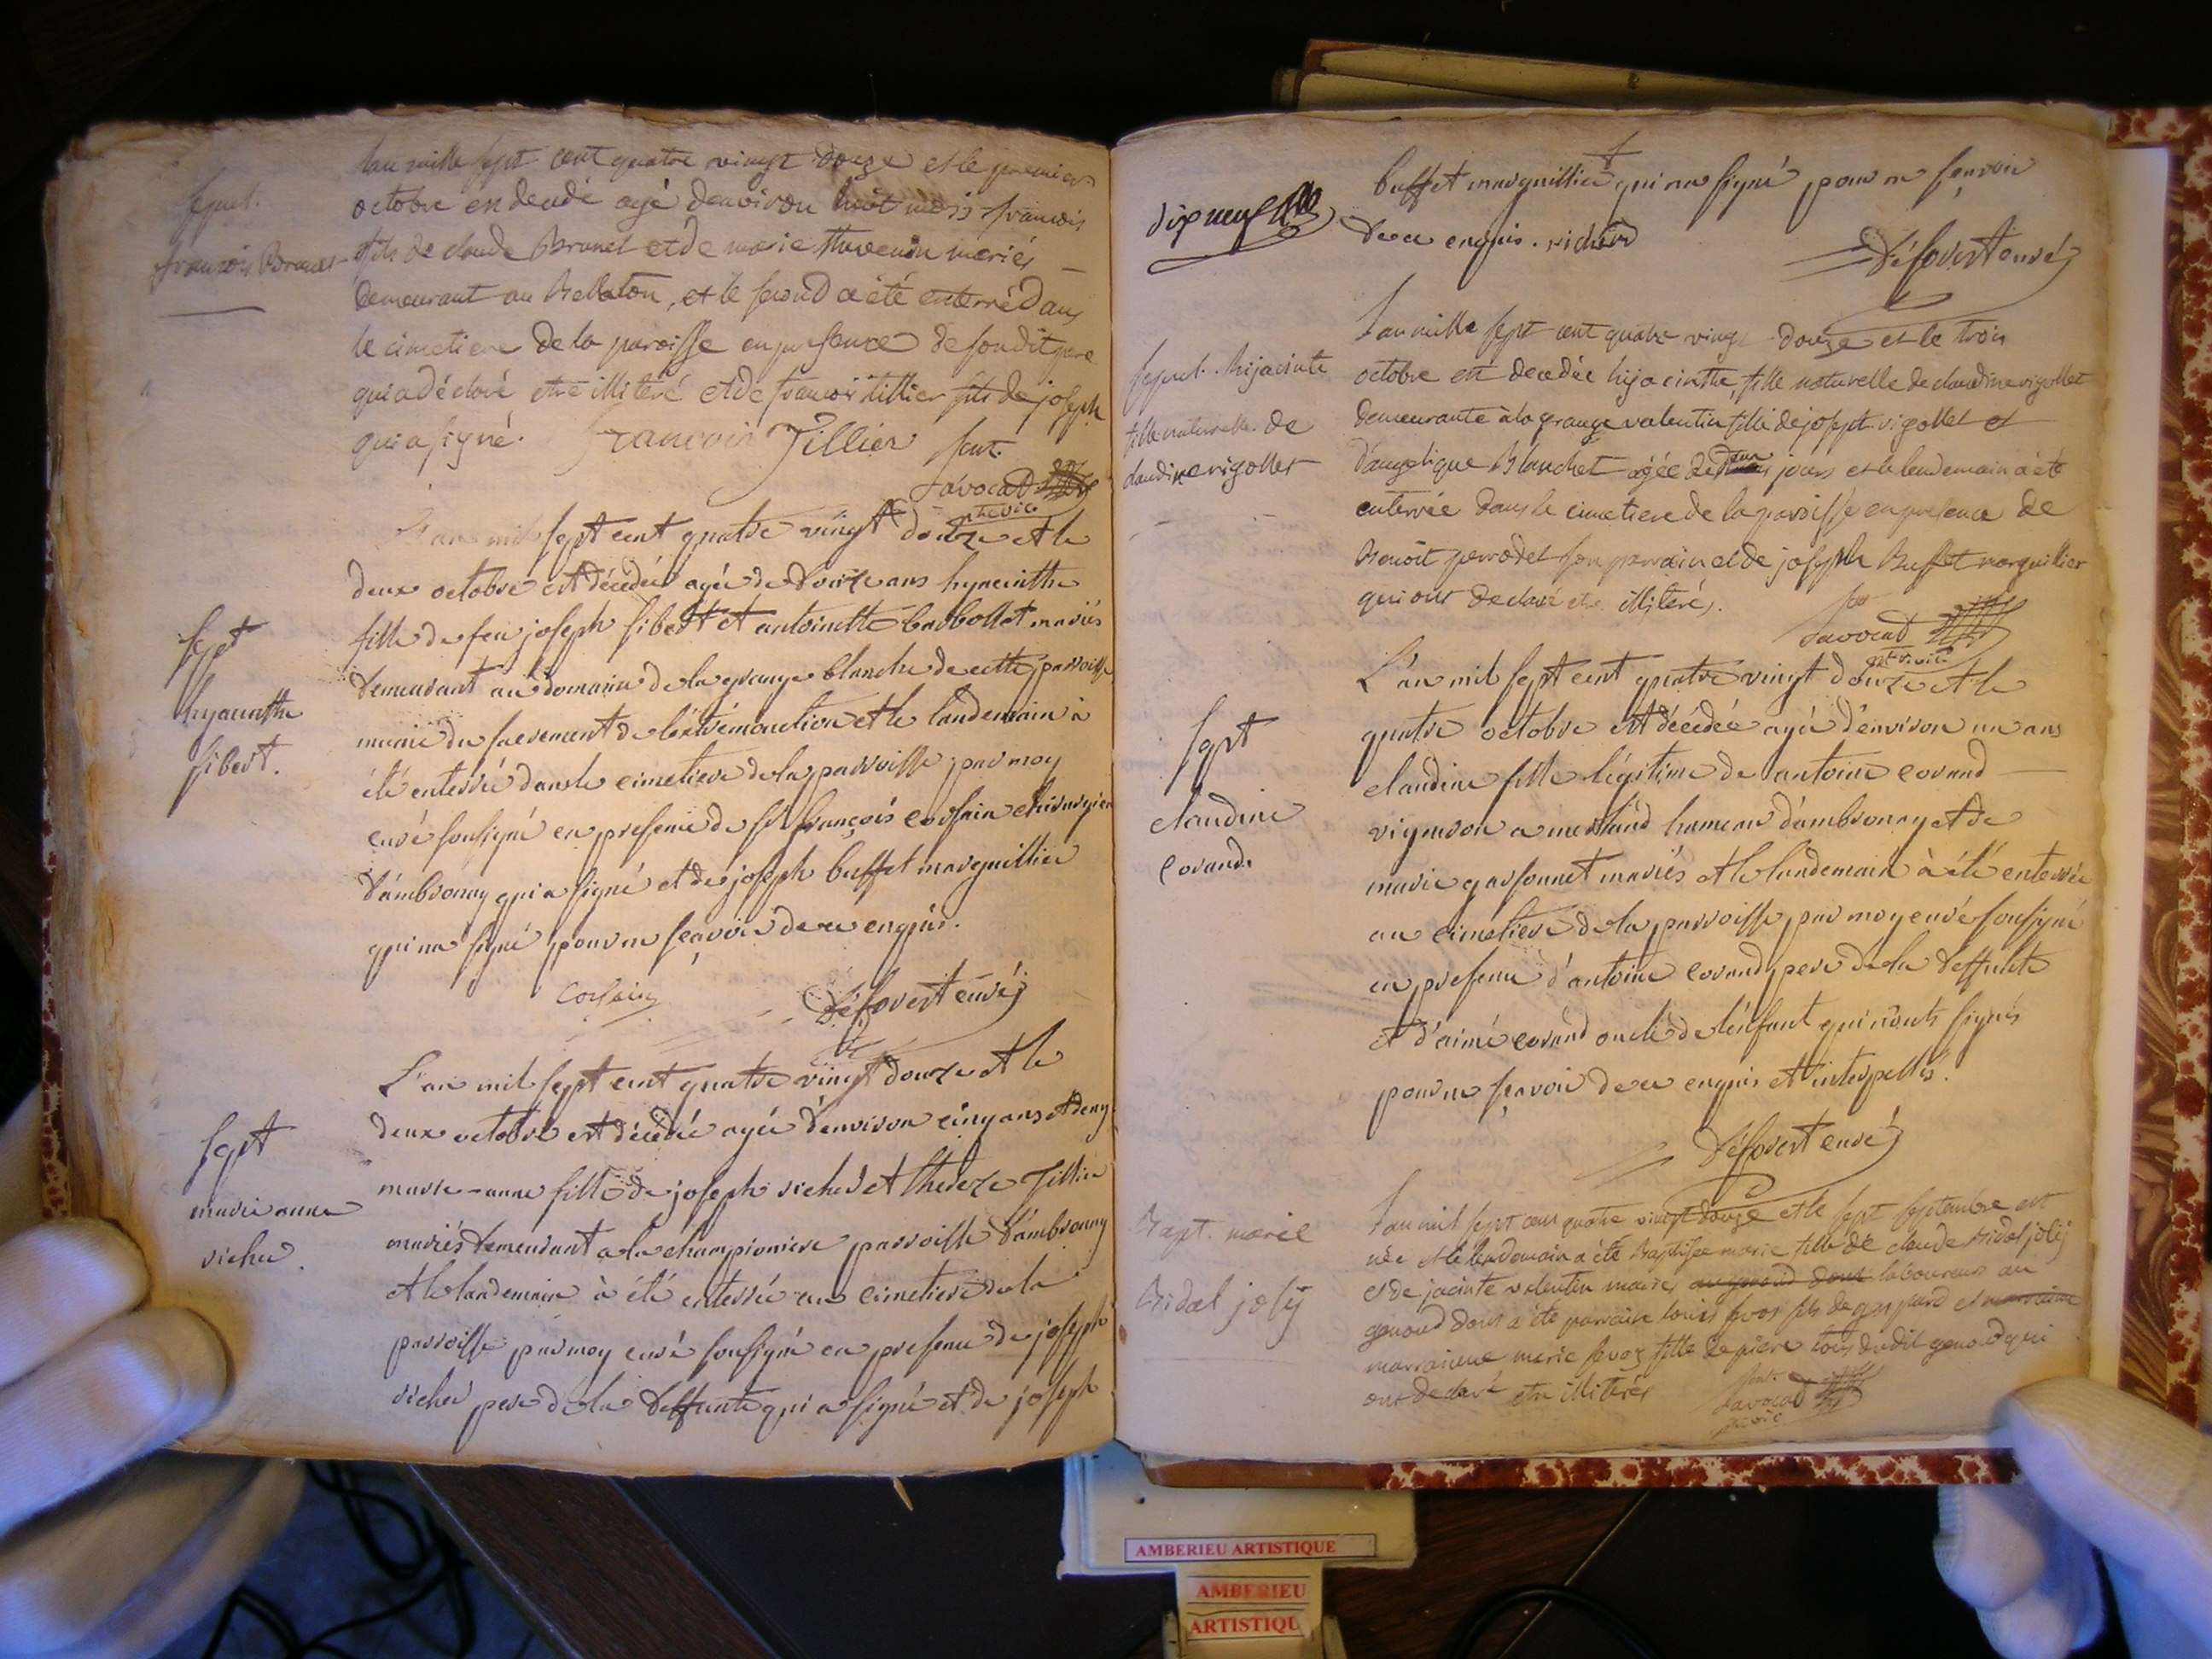 lan mille sept cent quatre vingt douze et le premier
octobre en decedé agé denviron huit mois francois
fils de claude Brunet et de marie thevenin mariés
demeurant au Rebaton, et le second a été enterré dans
le cimetiere de la paroisse en presence de son dit pere
qui a déclaré etre illiteré et de francois tillier fils de joseph
qui a signé. francois Tillier
Savocat
vic
Sepul.
francois Brunet
L'an mil sept cent quatre vingt douze et le
deux octobre est décédée agée de douze ans hyacinthe
fille de feu joseph sibert et antoinette barbollat mariés
demeurant au domaine de la grange blanche de cette parroisse
munie du sacrement de léxtrémonction et le landemain à
été enterrée dans le cimetiere de la parroisse par moy
curé soussigné en presence de sr françois corsain chirurgien
d'ambronay qui a signé et de joseph buffet marguillier
qui n'a signé pour ne sçavoir de ce enquis.
Corsain Déforest curéz
sept
hyacinthe
sibert.
L'an mil sept cent quatre vingt douze et le
deux octobre est décédée agée d'environ cinq ans et demy
marie-anne fille de joseph richer et thereze Tillier
mariés demeurant a la championiere parroisse d'ambronay
et le landemain à été enterrée au cimetiere de la
parroisse par moy curé soussigné en presence de joseph
richer pere de la deffunte qui a signé et de joseph
sept
marie anne
richer.
buffet marguillier qui n'a signé pour ne sçavoir
de ce enquis. richerd
Déforest curéz
dix neuf
lan mille sept cent quatre vingt douze et le trois
octobre est decedée hijacinthe, fille naturelle de claudine vigollet
demeurante à la grange valentin fille de josept vigollet et
d'angelique Blanchet agée de jours et le lendemain a été
enterrée dans le cimetiere de la paroisse en presence de
Benoit perrodet son parrain et de joseph Buffet marguillier
qui ont declaré etre illiterés.
Savocat
vic
sepul. hijacinte
fille naturelle de
claudine vigollet
L'an mil sept cent quatre vingt douze et le
quatre octobre est décédée agée d'environ un ans
claudine fille légitime de antoine corand
vigneron a merland hameau d'ambronay et de
marie garsonnet mariés et le landemain à été enterrée
au cimetiere de la parroisse par moy curé soussigné
en presence d'antoine corand pere de la deffunte
et d'aimé corand oncle de l'enfant qui n'onts signés
pour ne sçavoir de ce enquis et interpellés.
Déforest curéz
sept
claudine
Corand.
lan mil sept cent quatre vingt douze et le sept septembre est
née et le lendemain a été Baptisée marie fille de claude Bidal jolij
et de jacinte valentin mariés laboureur au
genoud dont a été parrain louis fils de gaspard et
marraine marie fille de piere tous dudit genoud qui
ont declaré etre illiterés
Savocat
vic
Bapt. marie
Bidal jolij
AMBERIEU ARTISTIQUE
AMBERIEU
ARTISTIQU